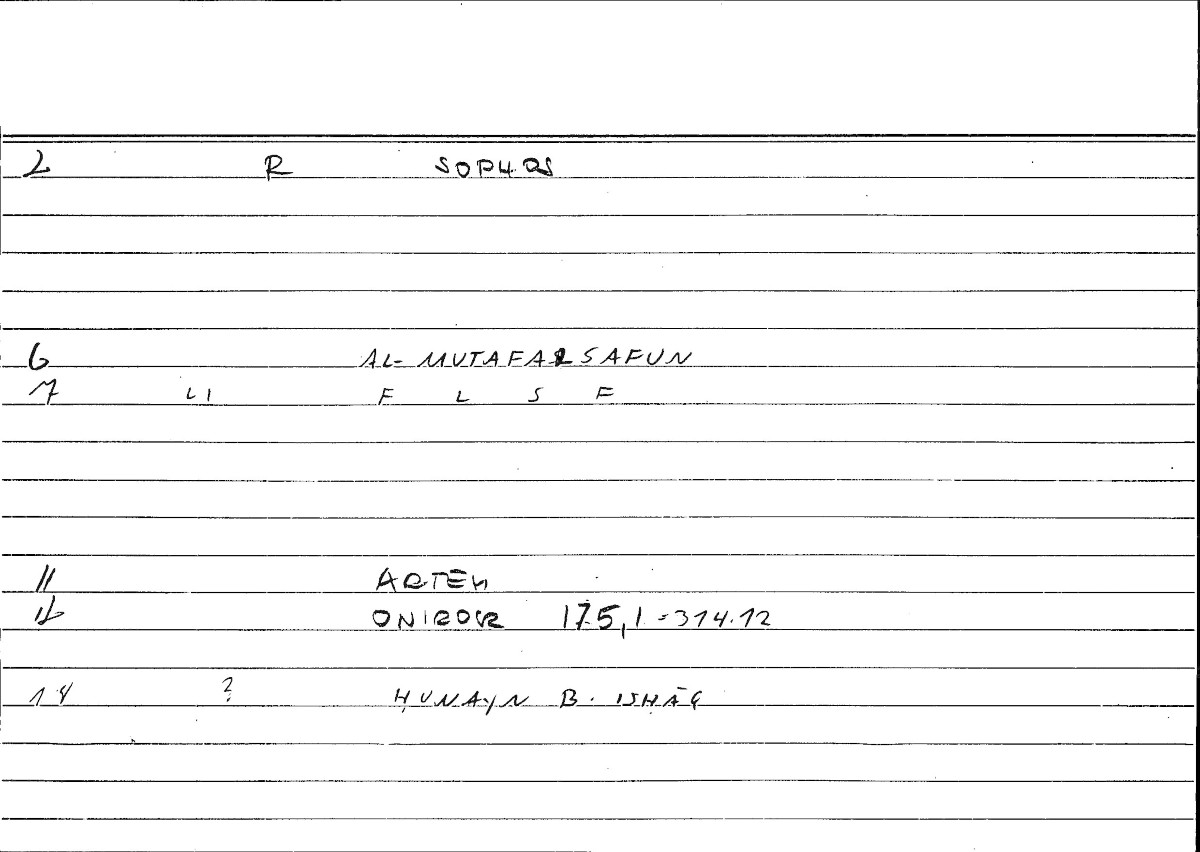 2 R SOPHOS
6 AL-MUTAFALSAFUN
7 LI F L S F
11 ARTEM
12 ONIROCR 175,1 = 314.12
14 ? ḤUNAYN B. ISḤĀQ